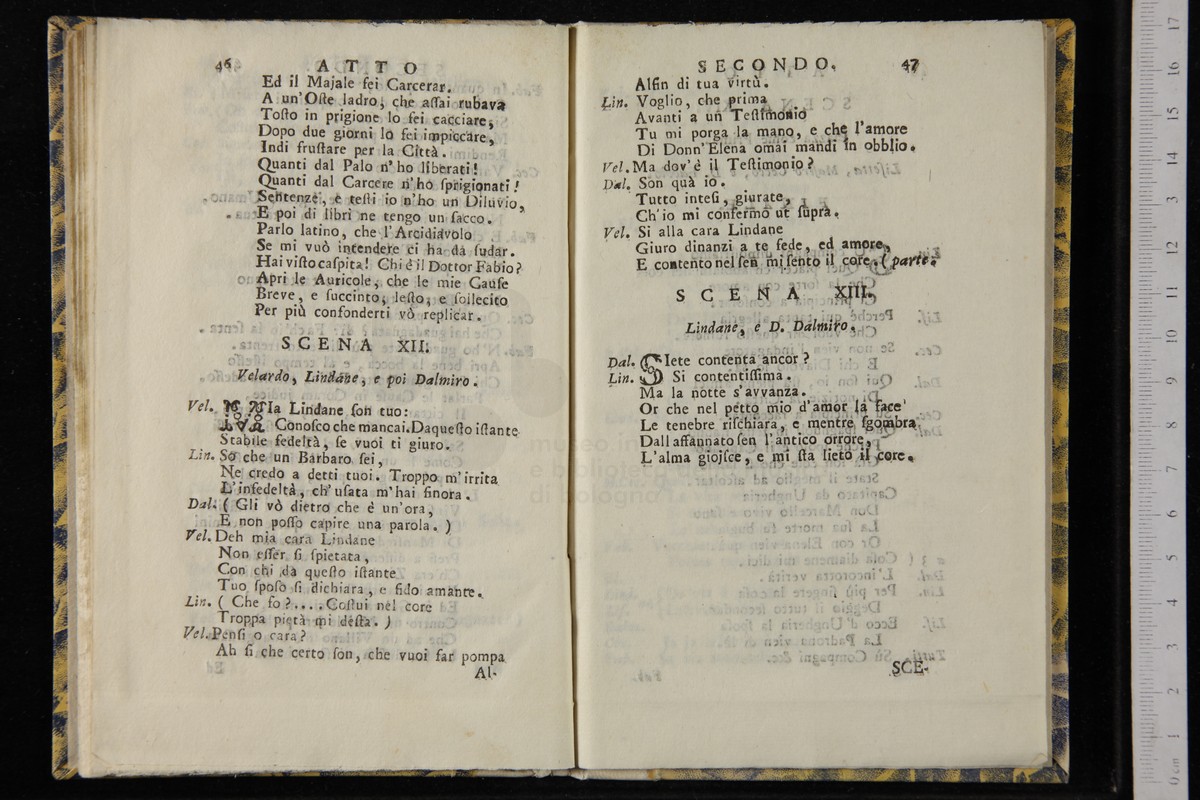 46 ATTO
Ed il Majale fei Carcerar.
A un'Oste ladro, che assai rubava
Tosto in prigione lo fei cacciare,
Dopo due giorni lo fei impiccare,
Indi frustare per la Città.
Quanti dal Palo n'ho liberati!
Quanti dal Carcere n'hò sprigionati!
Sentenze, è testi io n'ho un Diluvio,
E poi di libri ne tengo un sacco.
Parlo latino, che l'Arcidiavolo
Se mi vuò intendere ci ha da sudar.
Hai visto caspita! Chi è il Dottor Fabio?
Apri le Auricole, che le mie Cause
Breve, e succinto, lesto, e sollecito
Per più confonderti vò replicar.
SCENA XII.
Velardo, Lindane, e poi Dalmiro.
Vel. MIa Lindane son tuo:
Conosco che mancai. Da questo istante
Stabile fedeltà, se vuoi ti giuro.
Lin. Sò che un Barbaro sei,
Ne credo a detti tuoi. Troppo m'irrita
L'infedeltà, ch'usata m'hai sinora.
Dal. ( Gli vò dietro che è un'ora,
E non posso capire una parola. )
Vel. Deh mia cara Lindane
Non esser si spietata,
Con chi da questo istante
Tuo sposo si dichiara, e fido amante.
Lin. ( Che fo?.... Costui nel core
Troppa pietà mi desta. )
Vel. Pensi o cara?
Ah si che certo son, che vuoi far pompa
Al-
SECONDO. 47
Alfin di tua virtù.
Lin. Voglio, che prima
Avanti a un Testimonio
Tu mi porga la mano, e che l'amore
Di Donn'Elena omai mandi in obblio.
Vel. Ma dov'è il Testimonio?
Dal. Son quà io.
Tutto intesi, giurate,
Ch'io mi confermo ut supra.
Vel. Si alla cara Lindane
Giuro dinanzi a te fede, ed amore,
E contento nel sen mi sento il core. (parte.
SCENA XIII.
Lindane, e D. Dalmiro.
Dal. SIete contenta ancor?
Lin. Si contentissima.
Ma la notte s'avvanza.
Or che nel petto mio d'amor la face
Le tenebre rischiara, e mentre sgombra
Dall affannato sen l'antico orrore,
L'alma gioisce, e mi sta lieto il core.
SCE-